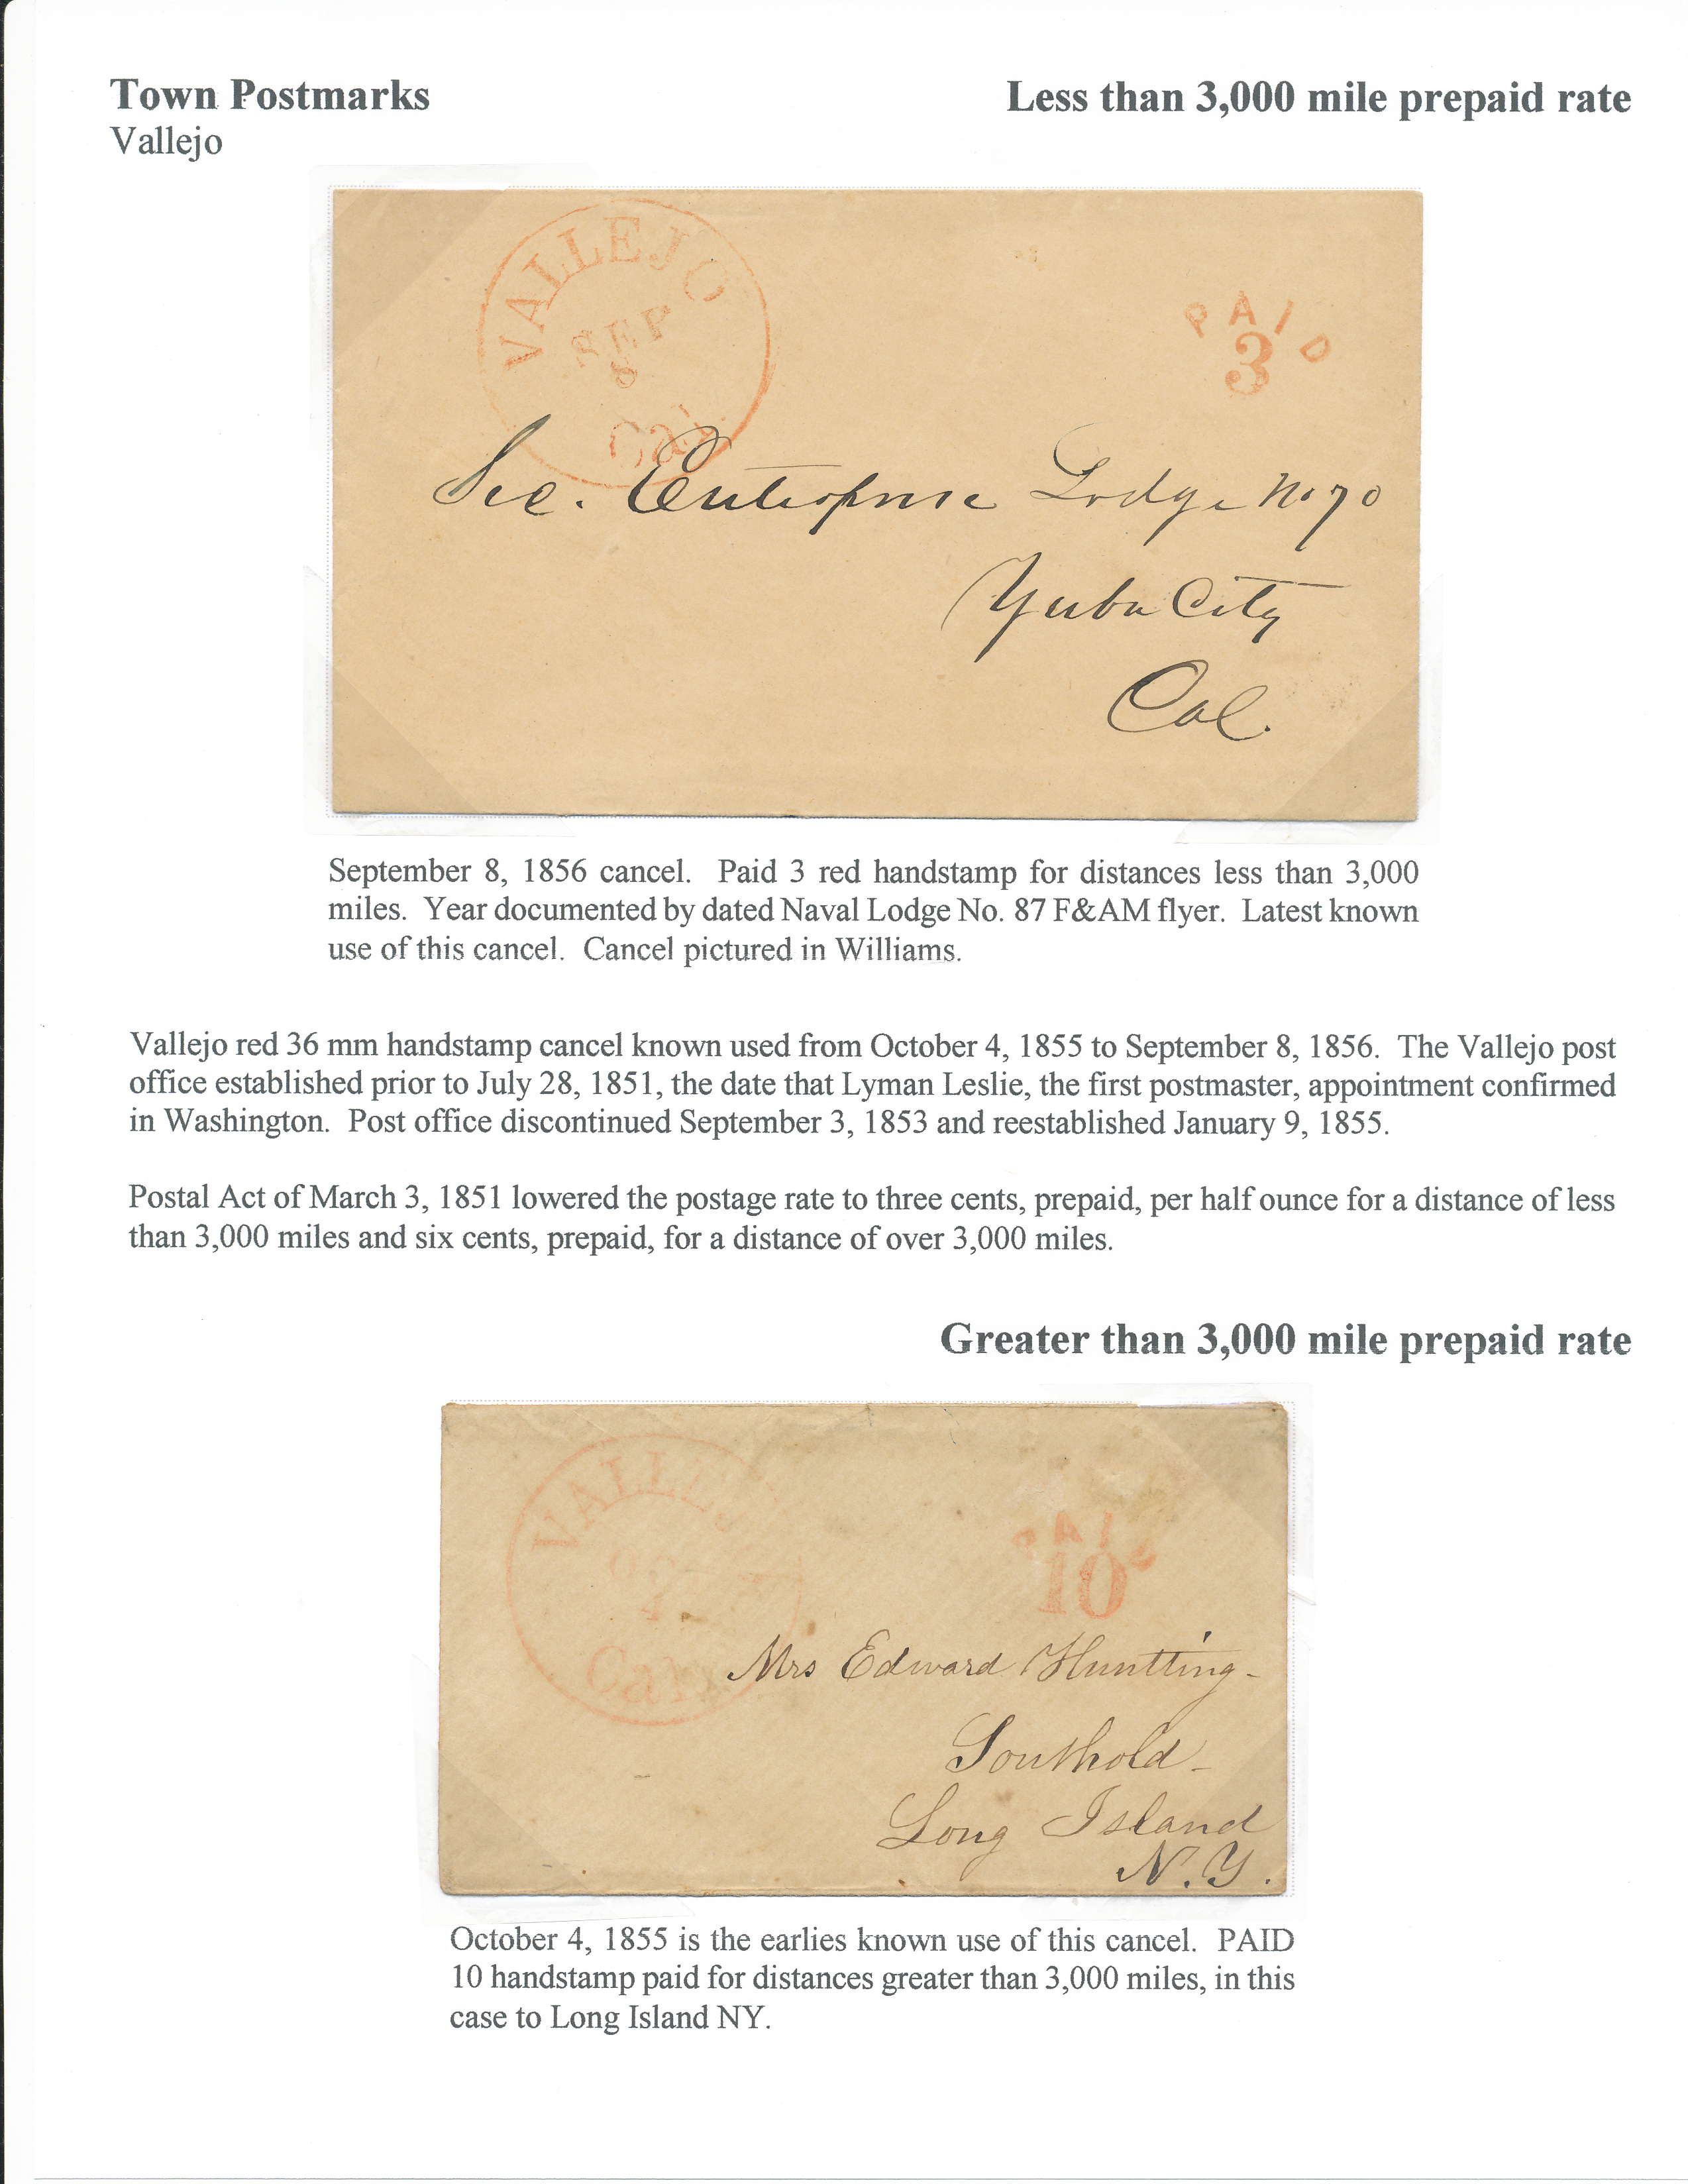 Town Postmarks
Less than 3,000 mile prepaid rate
Vallejo
VALLEJO
SEP
8
Cal.
PAID
3
Sec. Enterprise Lodge No 70
Yuba City
Cal.
September 8, 1856 cancel. Paid 3 red handstamp for distances less than 3,000
miles. Year documented by dated Naval Lodge No. 87 F&AM flyer. Latest known
use of this cancel. Cancel pictured in Williams.
Vallejo red 36 mm handstamp cancel known used from October 4, 1855 to September 8, 1856. The Vallejo post
office established prior to July 28, 1851, the date that Lyman Leslie, the first postmaster, appointment confirmed
in Washington. Post office discontinued September 3, 1853 and reestablished January 9, 1855.
Postal Act of March 3, 1851 lowered the postage rate to three cents, prepaid, per half ounce for a distance of less
than 3,000 miles and six cents, prepaid, for a distance of over 3,000 miles.
Greater than 3,000 mile prepaid rate
VALLEJ
OC
4
Cal
PAID
10
Mrs Edward Huntting-
Southold-
Long Island
N.Y.
October 4, 1855 is the earlies known use of this cancel. PAID
10 handstamp paid for distances greater than 3,000 miles, in this
case to Long Island NY.